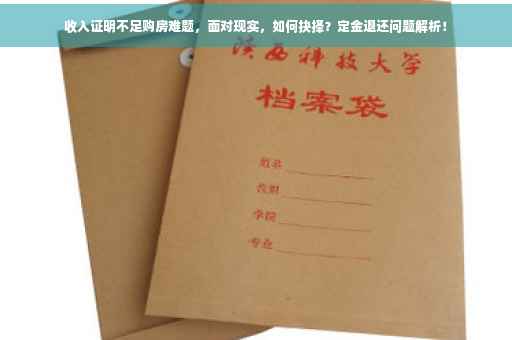 收入证明不足购房难题，面对现实，如何抉择？定金退还问题解析！
陕西科技大学
档案袋
姓名
学院
专业